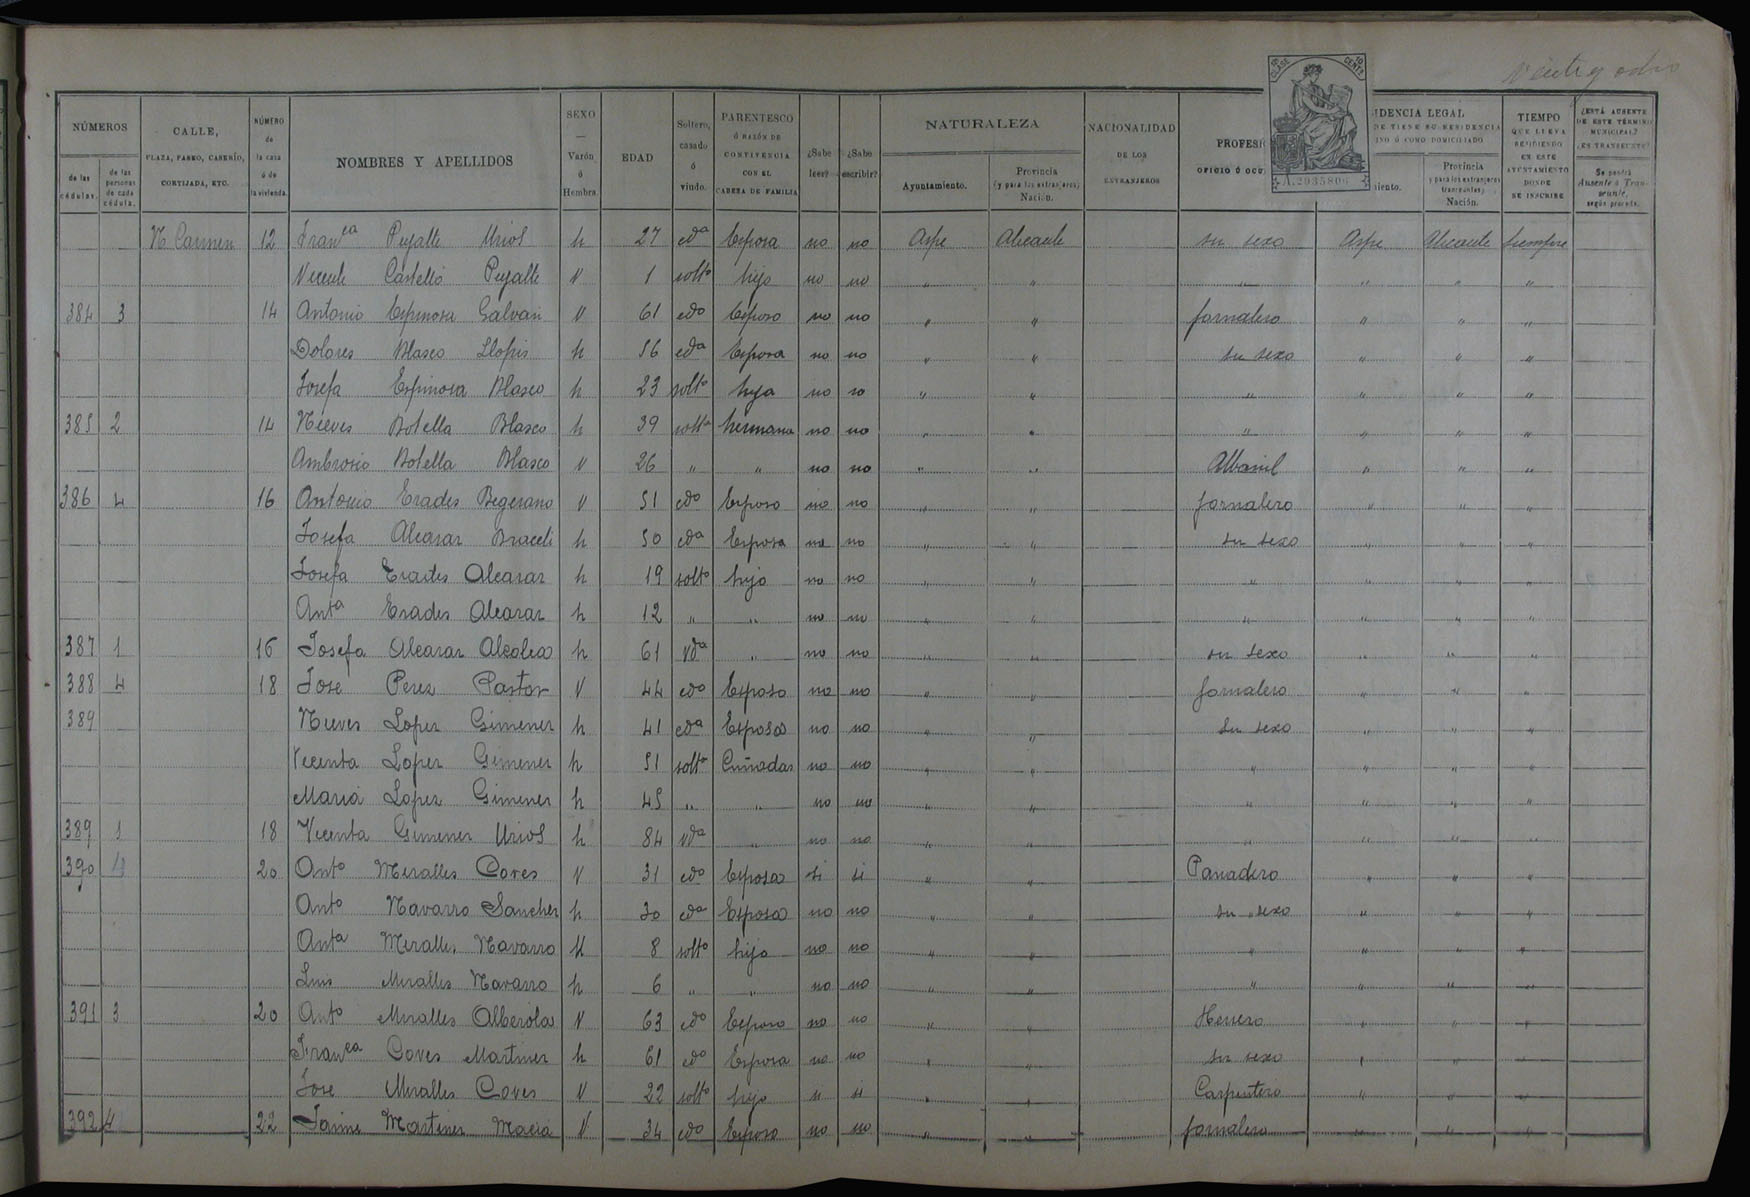 Veinti y ocho
10ª CLASE 10 CENTS
A.2935806
NÚMEROS
de las cédulas.
de las personas de cada cédula.
CALLE,
PLAZA, PASEO, CASERÍO,
CORTIJADA, ETC.
NÚMERO de la casa ó de la vivienda.
NOMBRES Y APELLIDOS
SEXO — Varón ó Hembra.
EDAD
Soltero, casado ó viudo.
PARENTESCO Ó RAZÓN DE CONVIVENCIA CON EL CABEZA DE FAMILIA
¿Sabe leer?
¿Sabe escribir?
NATURALEZA
Ayuntamiento.
Provincia (y para los extranjeros) Nación.
NACIONALIDAD DE LOS EXTRANJEROS
PROFESI
OFICIO Ó OCU
IDENCIA LEGAL
DE TIENE SU RESIDENCIA
INO Ó COMO DOMICILIADO
iento.
Provincia y para los extranjeros transeuntes) Nación.
TIEMPO QUE LLEVA RESIDIENDO EN ESTE AYUNTAMIENTO DONDE SE INSCRIBE
¿ESTÁ AUSENTE DE ESTE TÉRMINO MUNICIPAL? ¿ES TRANSEUNTE?
Se pondrá Ausente ó Transeunte, según proceda.
N Carmen 12 Franca Pujalte Uriol h 27 cda Esposa no no Aspe Alicante su sexo Aspe Alicante Siempre
Vicente Castelló Pujalte V 1 solto hijo no no " " " " " "
384 3 14 Antonio Espinosa Galvañ V 61 cdo Esposo no no " " Jornalero " " "
Dolores Blasco Llopis h 56 cda Esposa no no " " su sexo " " "
Josefa Espinosa Blasco h 23 solto hija no no " " " " " "
385 2 14 Nieves Botella Blasco h 39 solta hermana no no " " " " " "
Ambrosio Botella Blasco V 26 " " no no " " Albañil " " "
386 4 16 Antonio Erades Begerano V 51 cdo Esposo no no " " Jornalero " " "
Josefa Alcarar Braceli h 50 cda Esposa no no " " su sexo " " "
Josefa Erades Alcarar h 19 solto hijo no no " " " " " "
Anta Erades Alcarar h 12 " " no no " " " " " "
387 1 16 Josefa Alcarar Alcolea h 61 vda " no no " " su sexo " " "
388 4 18 Jose Perez Pastor V 44 cdo Esposo no no " " Jornalero " " "
389 Nieves Lopez Gimener h 41 cda Esposa no no " " su sexo " " "
Vicenta Lopez Gimener h 51 solta Cuñadas no no " " " " " "
Maria Lopez Gimener h 45 " " no no " " " " " "
389 1 18 Vicenta Gimener Uriol h 84 vda " no no " " " " " "
390 4 20 Anto Miralles Coves V 31 cdo Esposo si si " " Panadero " " "
Anto Navarro Sancher h 30 cda Esposa no no " " su sexo " " "
Anta Miralles Navarro h 8 solto hijo no no " " " " " "
Luis Miralles Navarro h 6 " " no no " " " " " "
391 3 20 Anto Miralles Alberola V 63 cdo Esposo no no " " Herrero " " "
Franca Coves Martiner h 61 cdo Esposa no no " " su sexo " " "
Jose Miralles Coves V 22 solto hijo si si " " Carpintero " " "
392 4 22 Jaime Martiner Maciá V 34 cdo Esposo no no " " Jornalero " " "